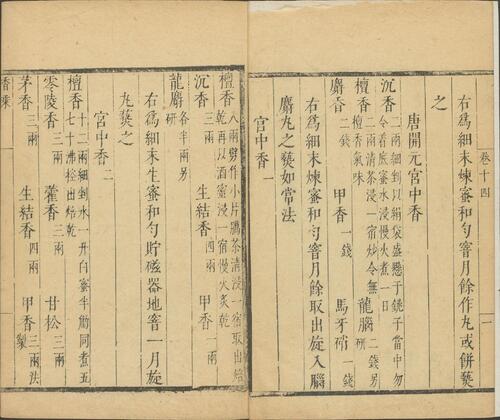 卷十四
一
右爲細末煉蜜和勻窨月餘作丸或餅爇
之
唐開元宮中香
沉香 二兩細剉以絹袋盛懸于銚子當中勿令着底蜜水浸慢火煮一日
檀香 二兩清茶浸一宿炒令無檀香氣味 龍腦 二錢另研
麝香 二錢 甲香 一錢 馬牙硝 一錢
右爲細末煉蜜和勻窨月餘取出旋入腦
麝丸之爇如常法
宮中香 一
檀香 八兩劈作小片臘茶清浸一宿取出焙乾再以酒蜜浸一宿慢火炙乾
沉香 三兩 生結香 四兩 甲香 一兩
龍麝 各半兩另研
右爲細末生蜜和勻貯磁器地窨一月旋
丸爇之
宮中香 二
檀香 十二兩細剉水一升白蜜半觔同煮五七十沸控出焙乾
零陵香 三兩 藿香 三兩 甘松 三兩
茅香 三兩 生結香 四兩 甲香 三兩法製
香乘